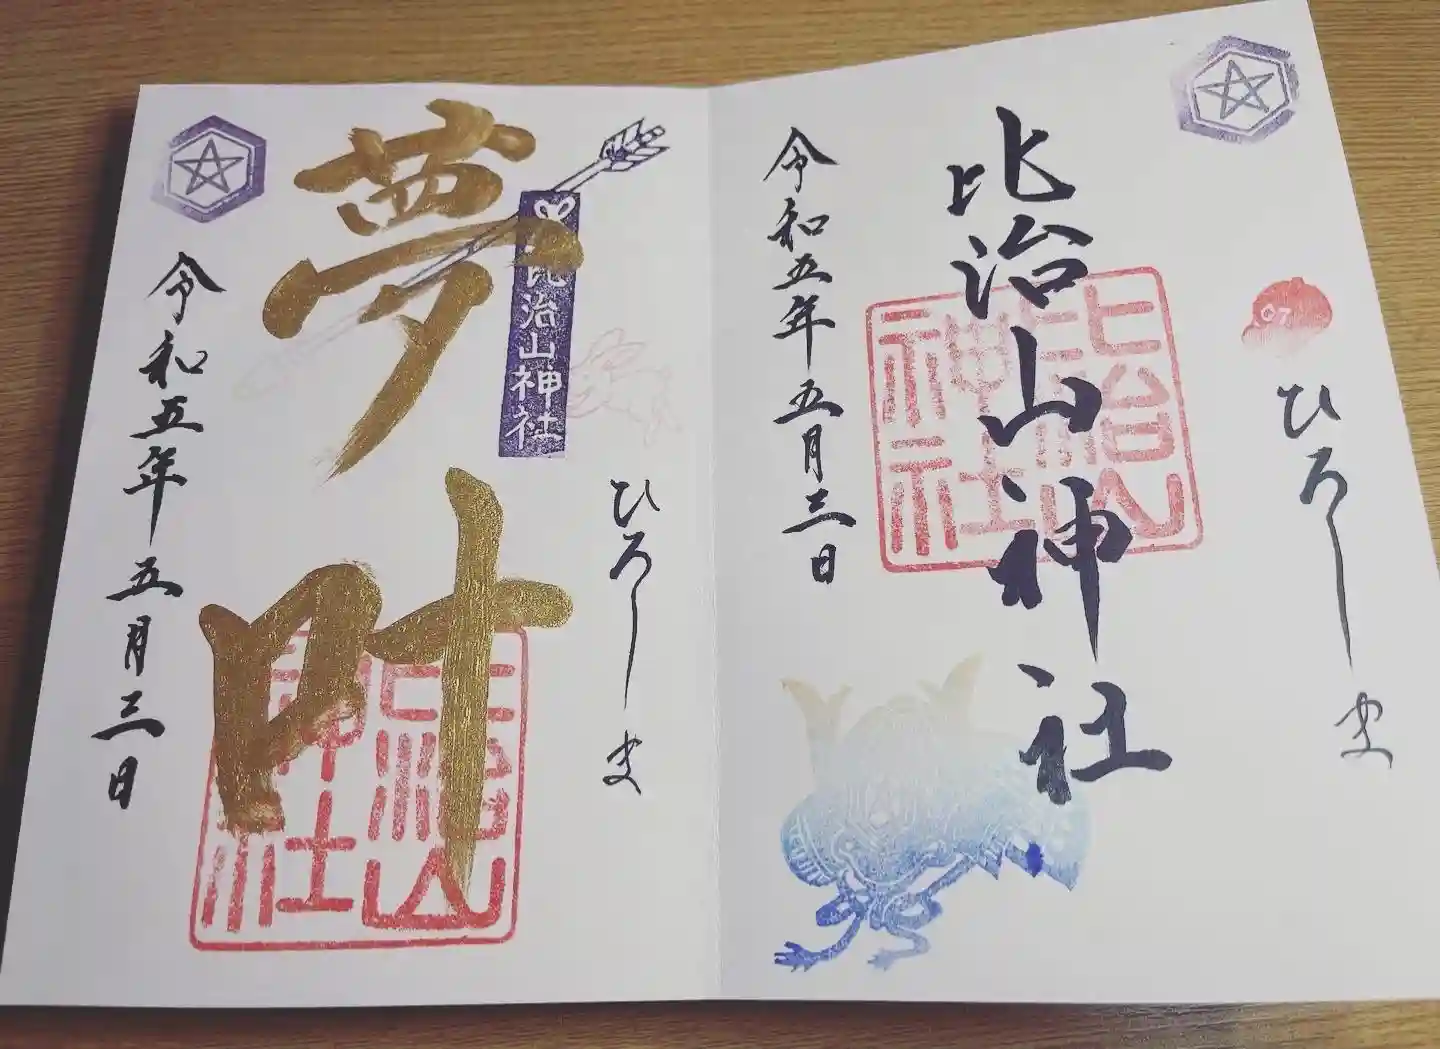 07
ひろしま
比治山神社
比治山神社
令和五年五月三日
ひろしま
比治山神社
夢叶
比治山神社
令和五年五月三日